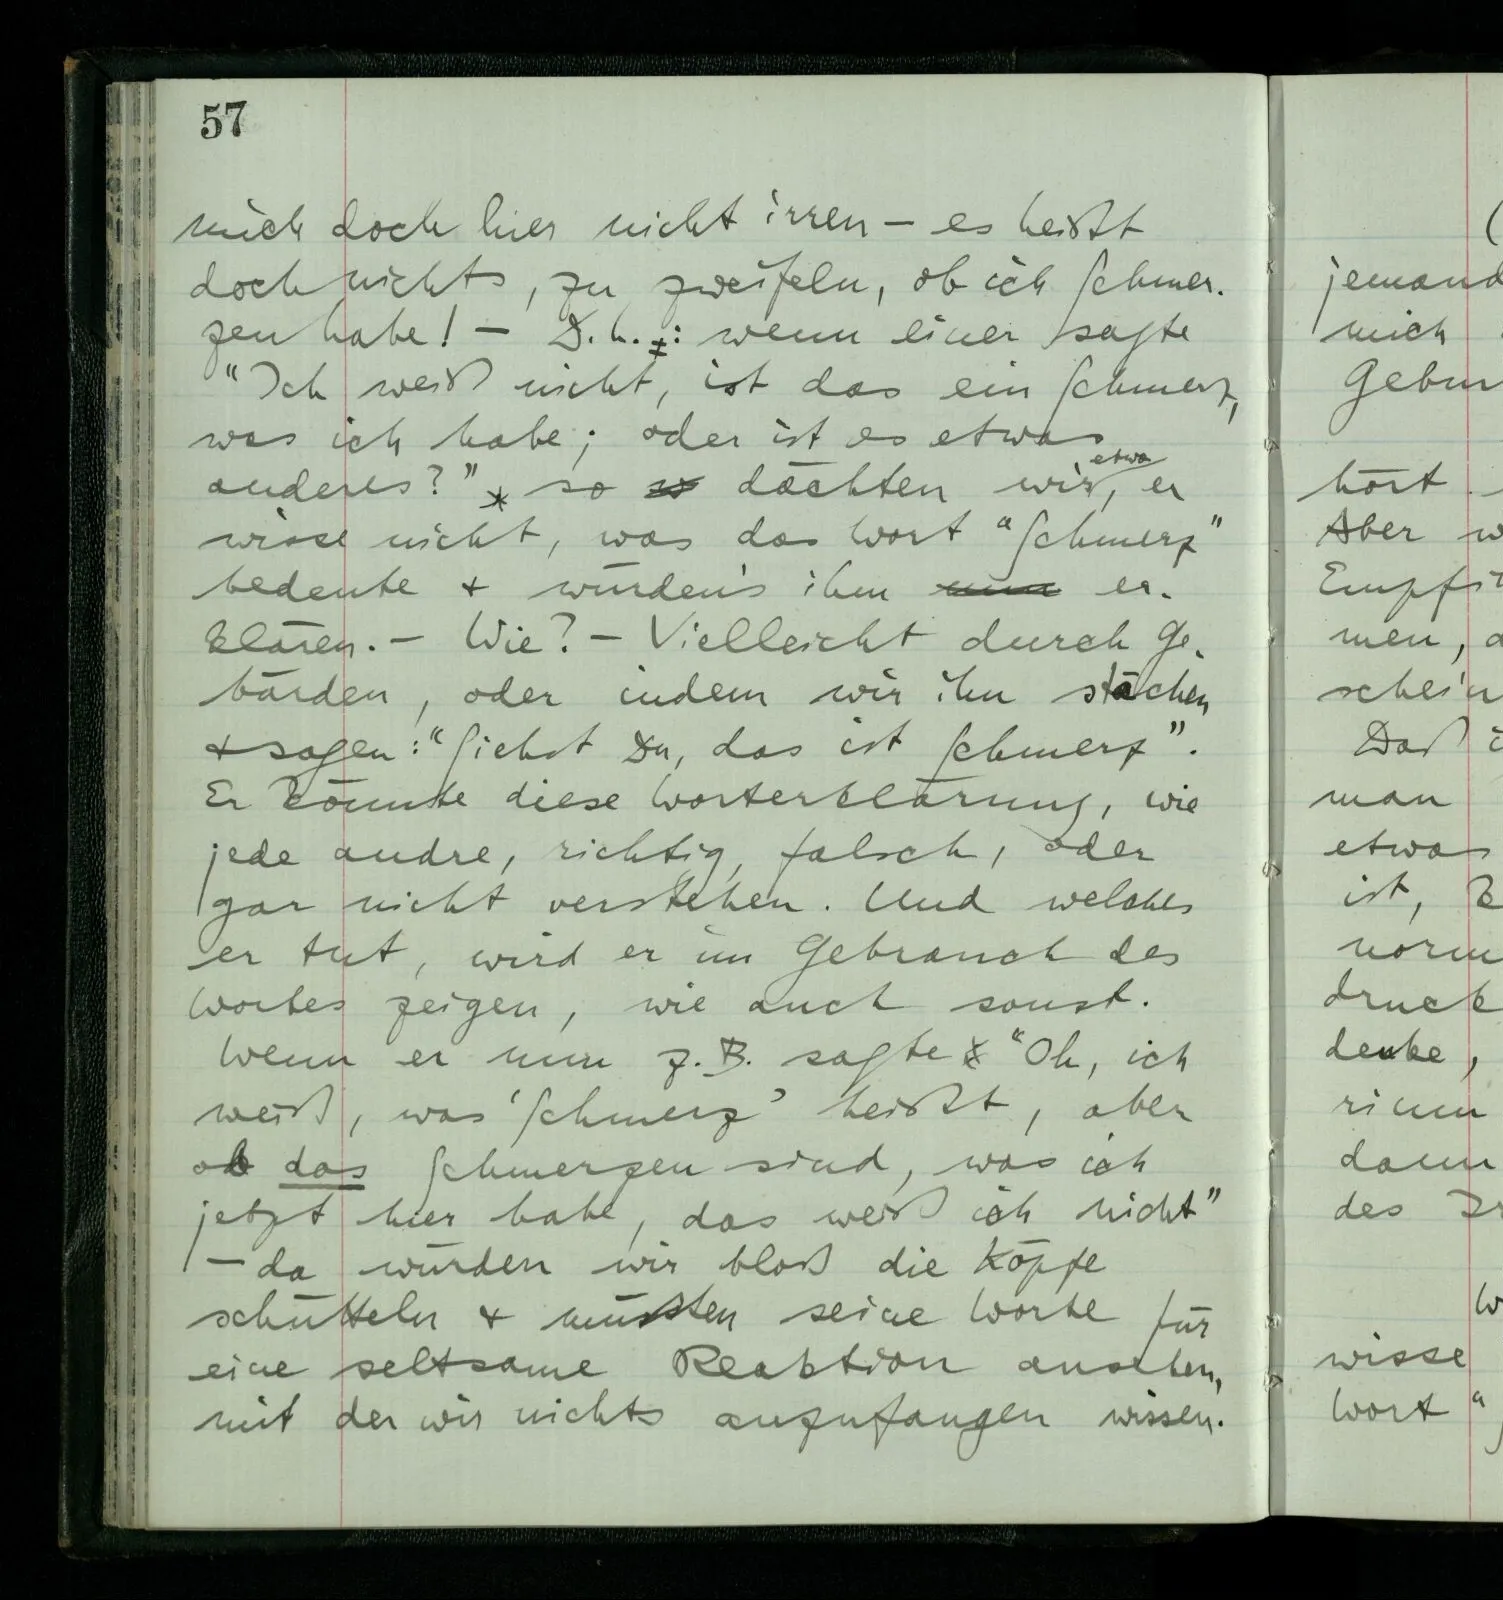 57
mich doch hier nicht irren — es heißt
doch nichts, zu zweifeln, ob ich Schmer-
zen habe! — D.h.: wenn einer sagte
"Ich weiß nicht, ist das ein Schmerz,
was ich habe; oder ist es etwas
etwa
anderes?" so dächten wir, er
wisse nicht, was das Wort "Schmerz"
bedeute & würden's ihm er-
klären. — Wie? — Vielleicht durch Ge-
bärden, oder indem wir ihn stächen
& sagen: "Siehst Du, das ist Schmerz".
Er könnte diese Worterklärung, wie
jede andre, richtig, falsch, oder
gar nicht verstehen. Und welches
er tut, wird er im Gebrauch des
Wortes zeigen, wie auch sonst.
Wenn er nun z.B. sagte "Oh, ich
weiß, was 'Schmerz' heißt, aber
ob das Schmerzen sind, was ich
jetzt hier habe, das weiß ich nicht"
— da würden wir bloß die Köpfe
schütteln & müßten seine Worte für
eine seltsame Reaktion ansehen,
mit der wir nichts anzufangen wissen.
(
jemand
mich
Gebur
hört
Aber w
Empfi
men, a
schein
Daß i
man
etwas
ist, k
norm
druck
denke,
rinn
dann
des Ir
W
wisse
Wort "